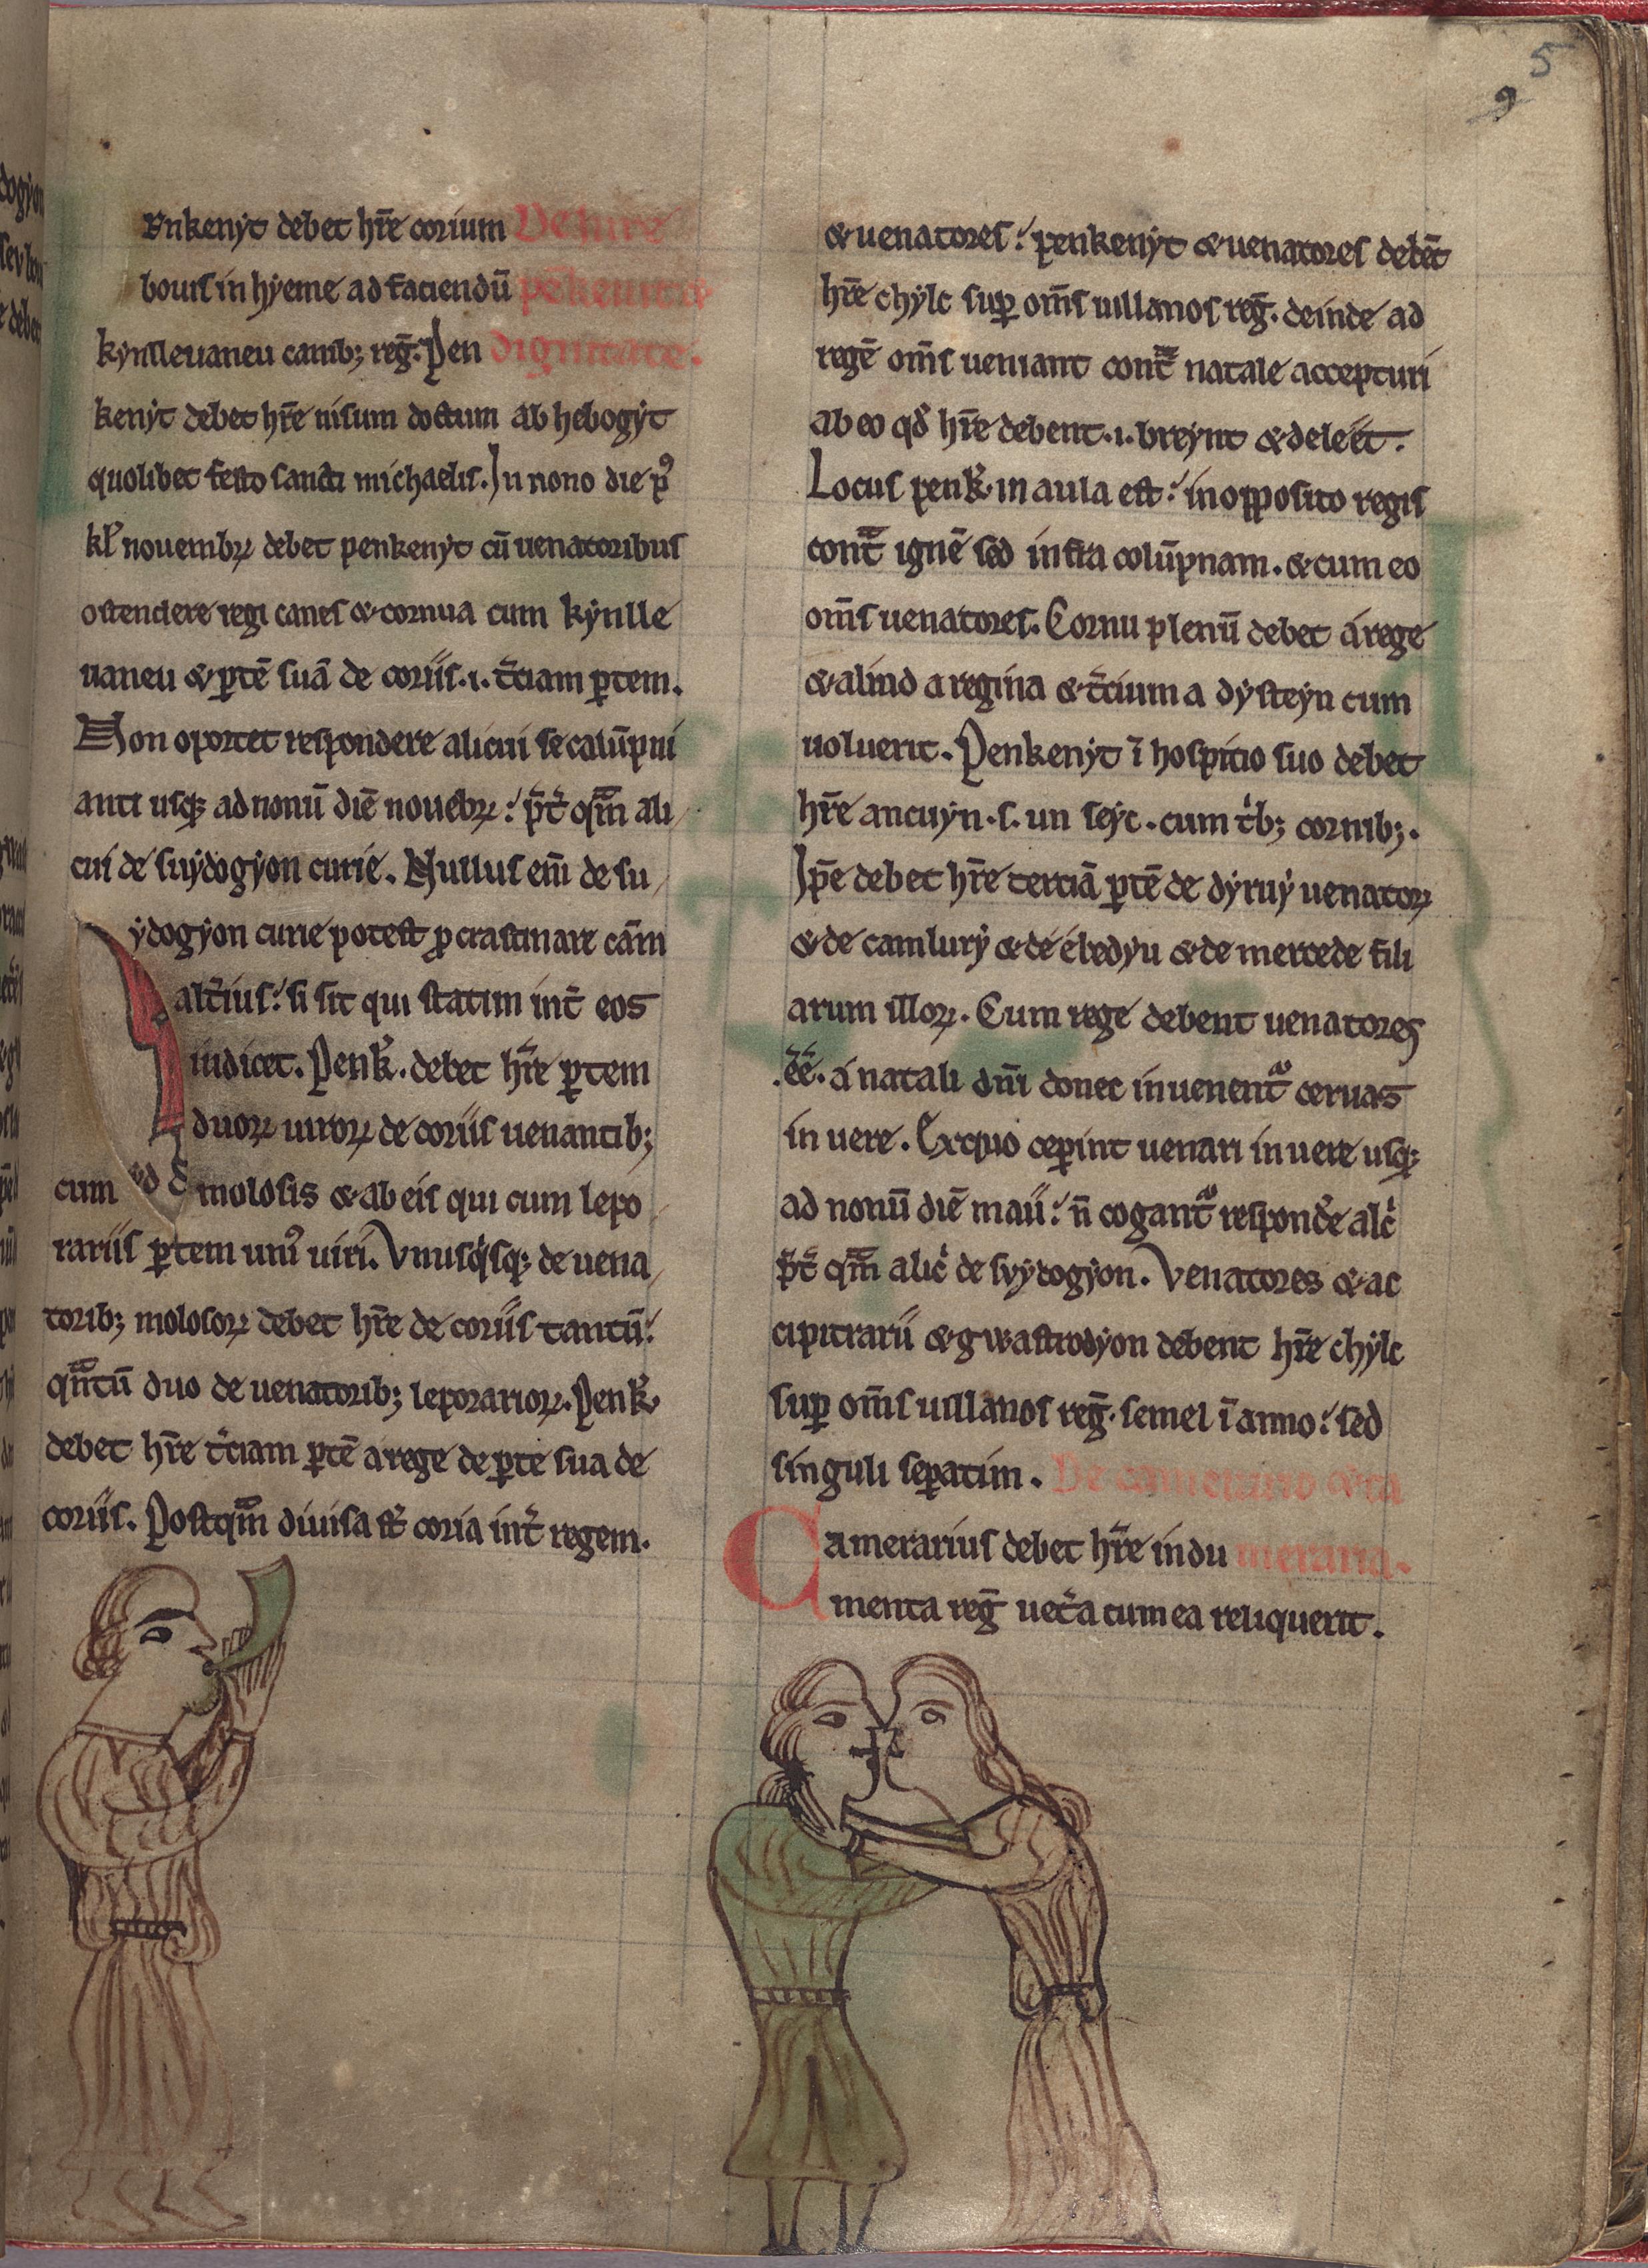 5
9
enkenyt debet hr̄e corium De iure
bouis in hyeme ad faciendū pēkenit
kynlleuaneu canib; reḡ. Pen dignitate.
kenyt debet hr̄e nisum doctum ab hebogyt
quolibet festo sancti michaelis. In nono die
kł nouembꝝ debet penkenyt cū uenatoribus
ostendere regi canes & cornua cum kynlle
uaneu & ꝑtē suā de coriis .i. t̄ciam ꝑtem.
Non oportet respondere alicui se calūpni
anti usq; ad nonū diē nouēbꝝ: p̄t̄ qm̄ ali
cui de suydogyon curie. Nullus em̄ de su
ydogyon curie potest ꝓcrastinare cām
alt̄ius: si sit qui statim int̄ eos
iudicet. Penk̄. debet hr̄e ꝑtem
duoꝝ uiroꝝ de coriis uenantib;
cum molosis & ab eis qui cum lepo
rariis ꝑtem uniꝰ uiri. Vnusqisq; de uena
torib; molosoꝝ debet hr̄e de coriis tantū:
qn̄tū duo de uenatorib; leporarioꝝ. Penk̄
debet hr̄e t̄ciam ꝑtē a rege de ꝑte sua de
coriis. Postqm̄ diuisa st̄ coria int̄ regem.
& uenatores: penkenyt & uenatores debēt
hr̄e chylc suꝑ om̄s uillanos reḡ. deinde ad
regē om̄s ueniant cont̄ natale accepturi
ab eo qd̄ hr̄e debent .i. breynt & deleet.
Locus penk̄. in aula est: in opposito regis
cont̄ ignē sed infra colūpnam. & cum eo
om̄s uenatores. Cornu plenū debet a rege
& aliud a regina & t̄cium a dysteyn cum
uoluerit. Penkenyt ī hospitio suo debet
hr̄e ancuyn .s. un seyc. cum t̍b; cornib;.
Ip̄e debet hr̄e terciā ꝑtē de dyruy uenatoꝝ
& de camlury & de ebedyu & de mercede fili
arum illoꝝ. Cum rege debent uenatores
ēē. a natali dn̄i donec inuenent̄ ceruas
in uere. Exquo ceꝑint uenari in uere usq;
ad nonū diē maii: n̄ cogant̄ respondē alc̍
p̄t̄ qm̄ alic̍ de svydogyon. Venatores & ac
cipitrarii & gwastrodyon debent hr̄e chylc
suꝑ om̄s uillanos reḡ. semel ī anno: sed
singuli seꝑatim. De camerario & ca
Camerarius debet hr̄e indu meraria.
menta reḡ uet̄a cum ea reliquerit.